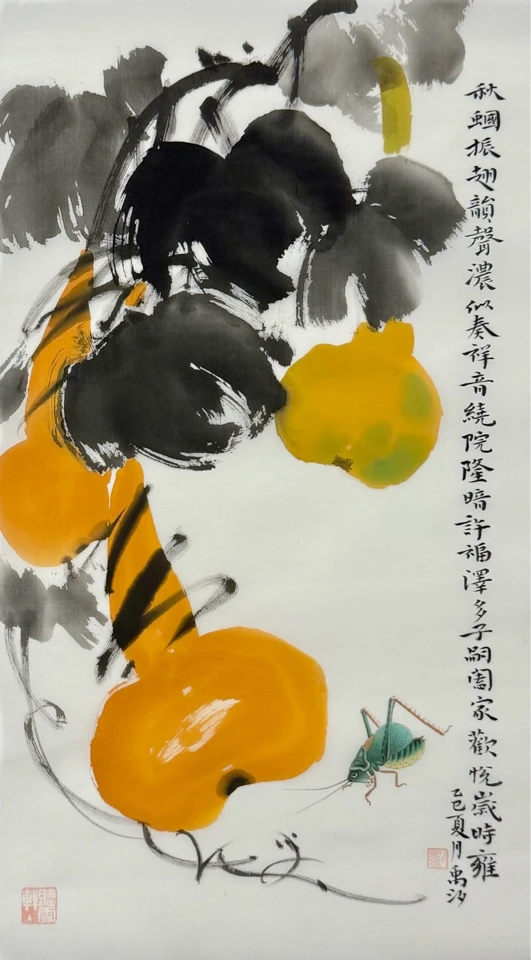 秋蟈振翅韻聲濃似奏祥音繞院隆暗許福澤多子嗣闔家歡悅歲時雍
乙巳夏月禹汐